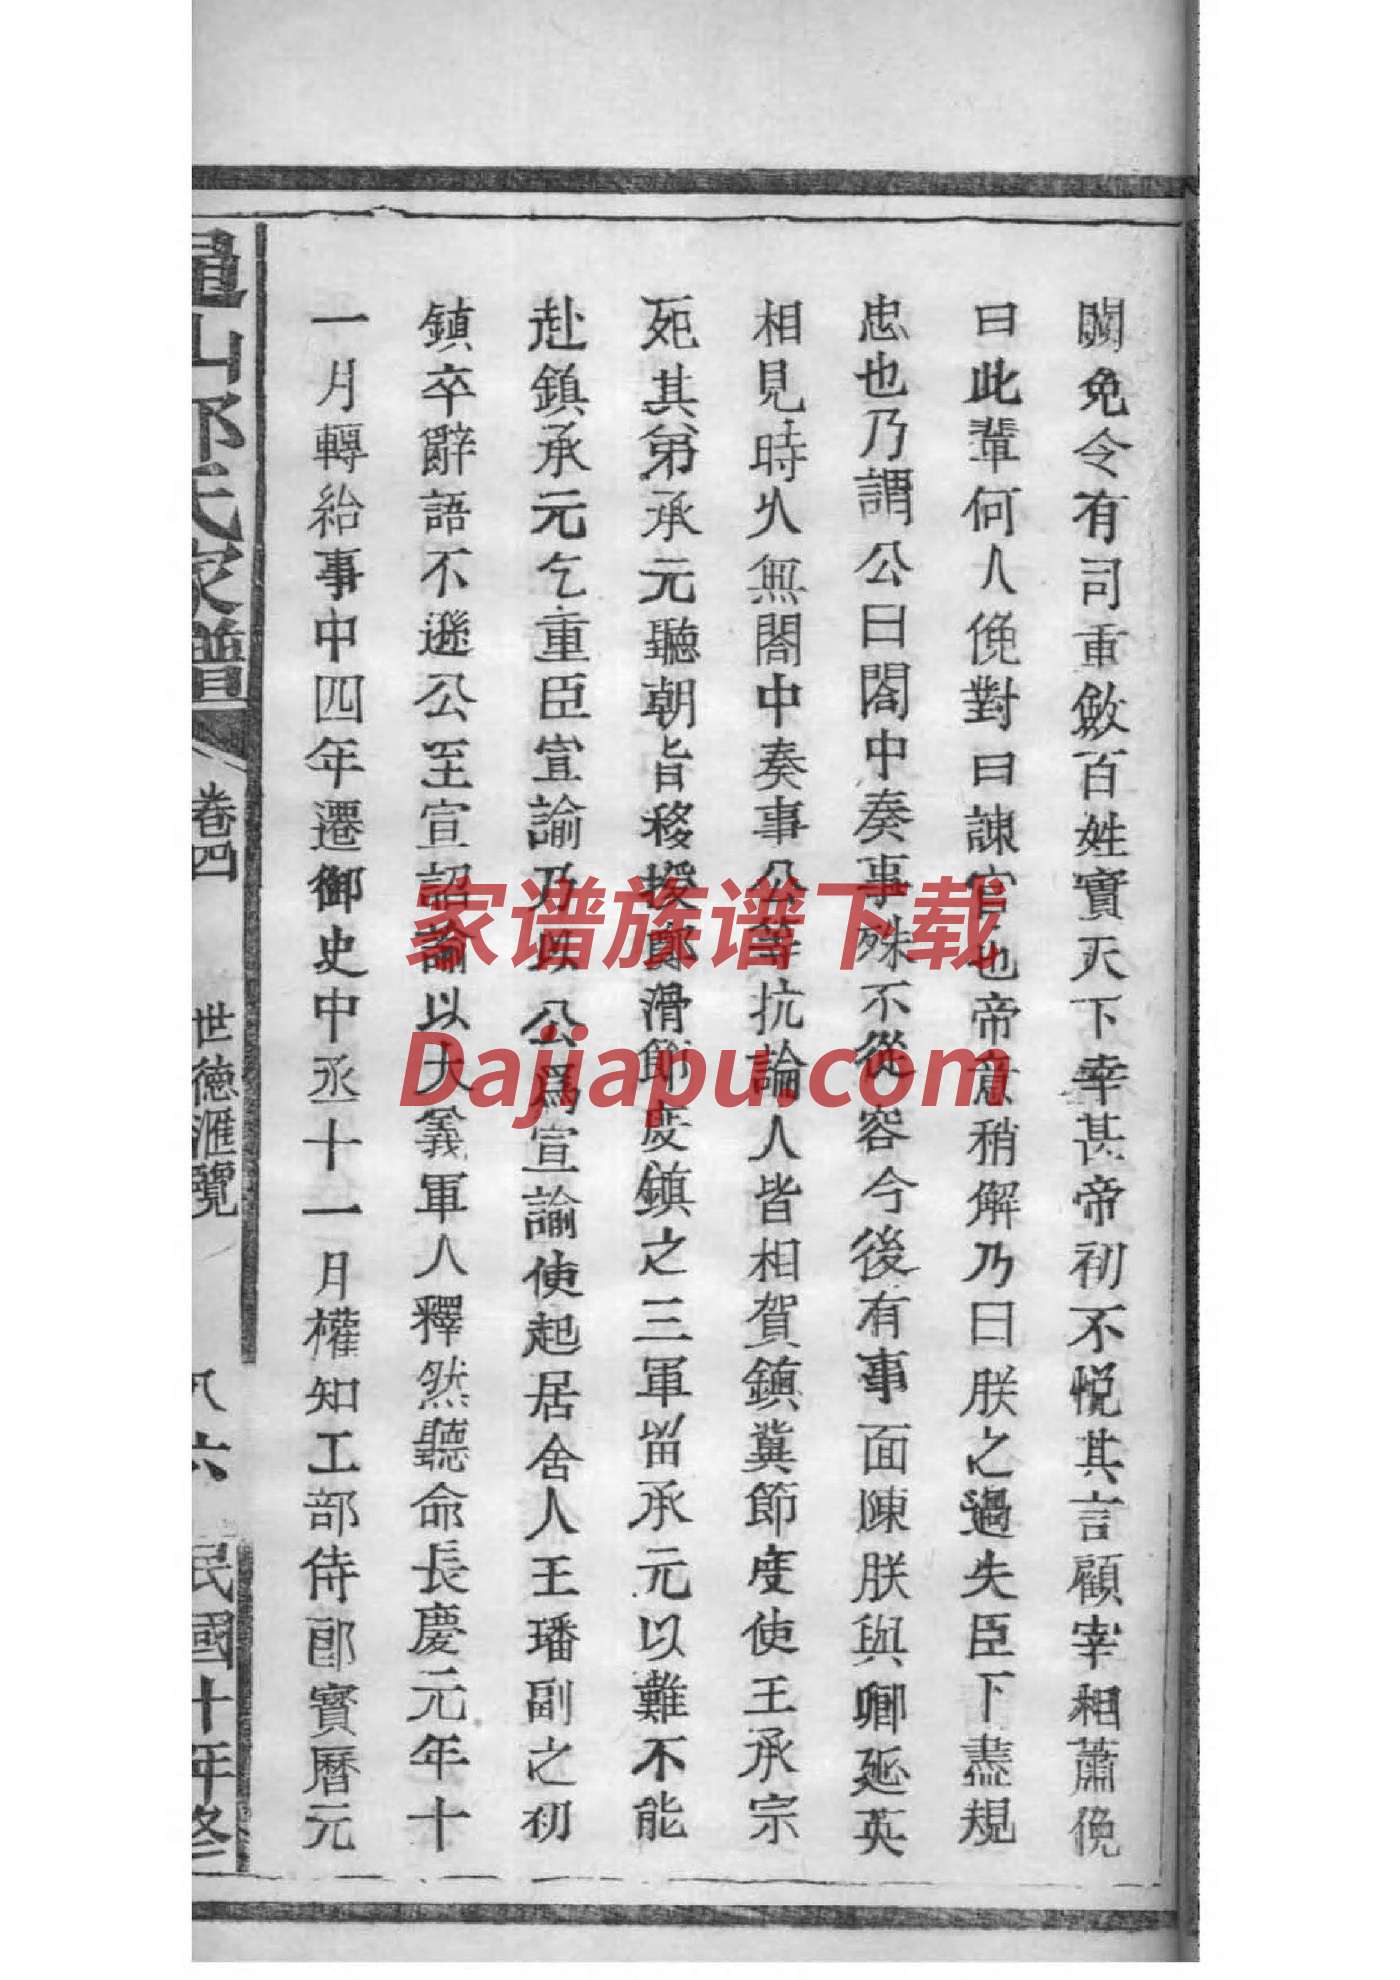 闕免令有司重斂百姓實天下幸甚帝初不悅其言顧宰相蕭俛
曰此輩何人俛對曰諫官也帝意稍解乃曰朕之過失臣下盡規
忠也乃謂公曰閤中奏事殊不從容今後有事面陳朕與卿延英
相見時久無閤中奏事公等抗論人皆相賀鎮冀節度使王承宗
死其弟承元聽朝旨移授鄭滑節度鎮之三軍畱承元以難不能
赴鎮承元乞重臣宣諭乃以公爲宣諭使起居舍人王璠副之初
鎮卒辭語不遜公至宣詔諭以大義軍人釋然聽命長慶元年十
一月轉給事中四年遷御史中丞十一月權知工部侍郎寶曆元
山鄭氏家譜
卷四
世德滙覽
八六
民國十年修
家谱族谱下载
Dajiapu.com